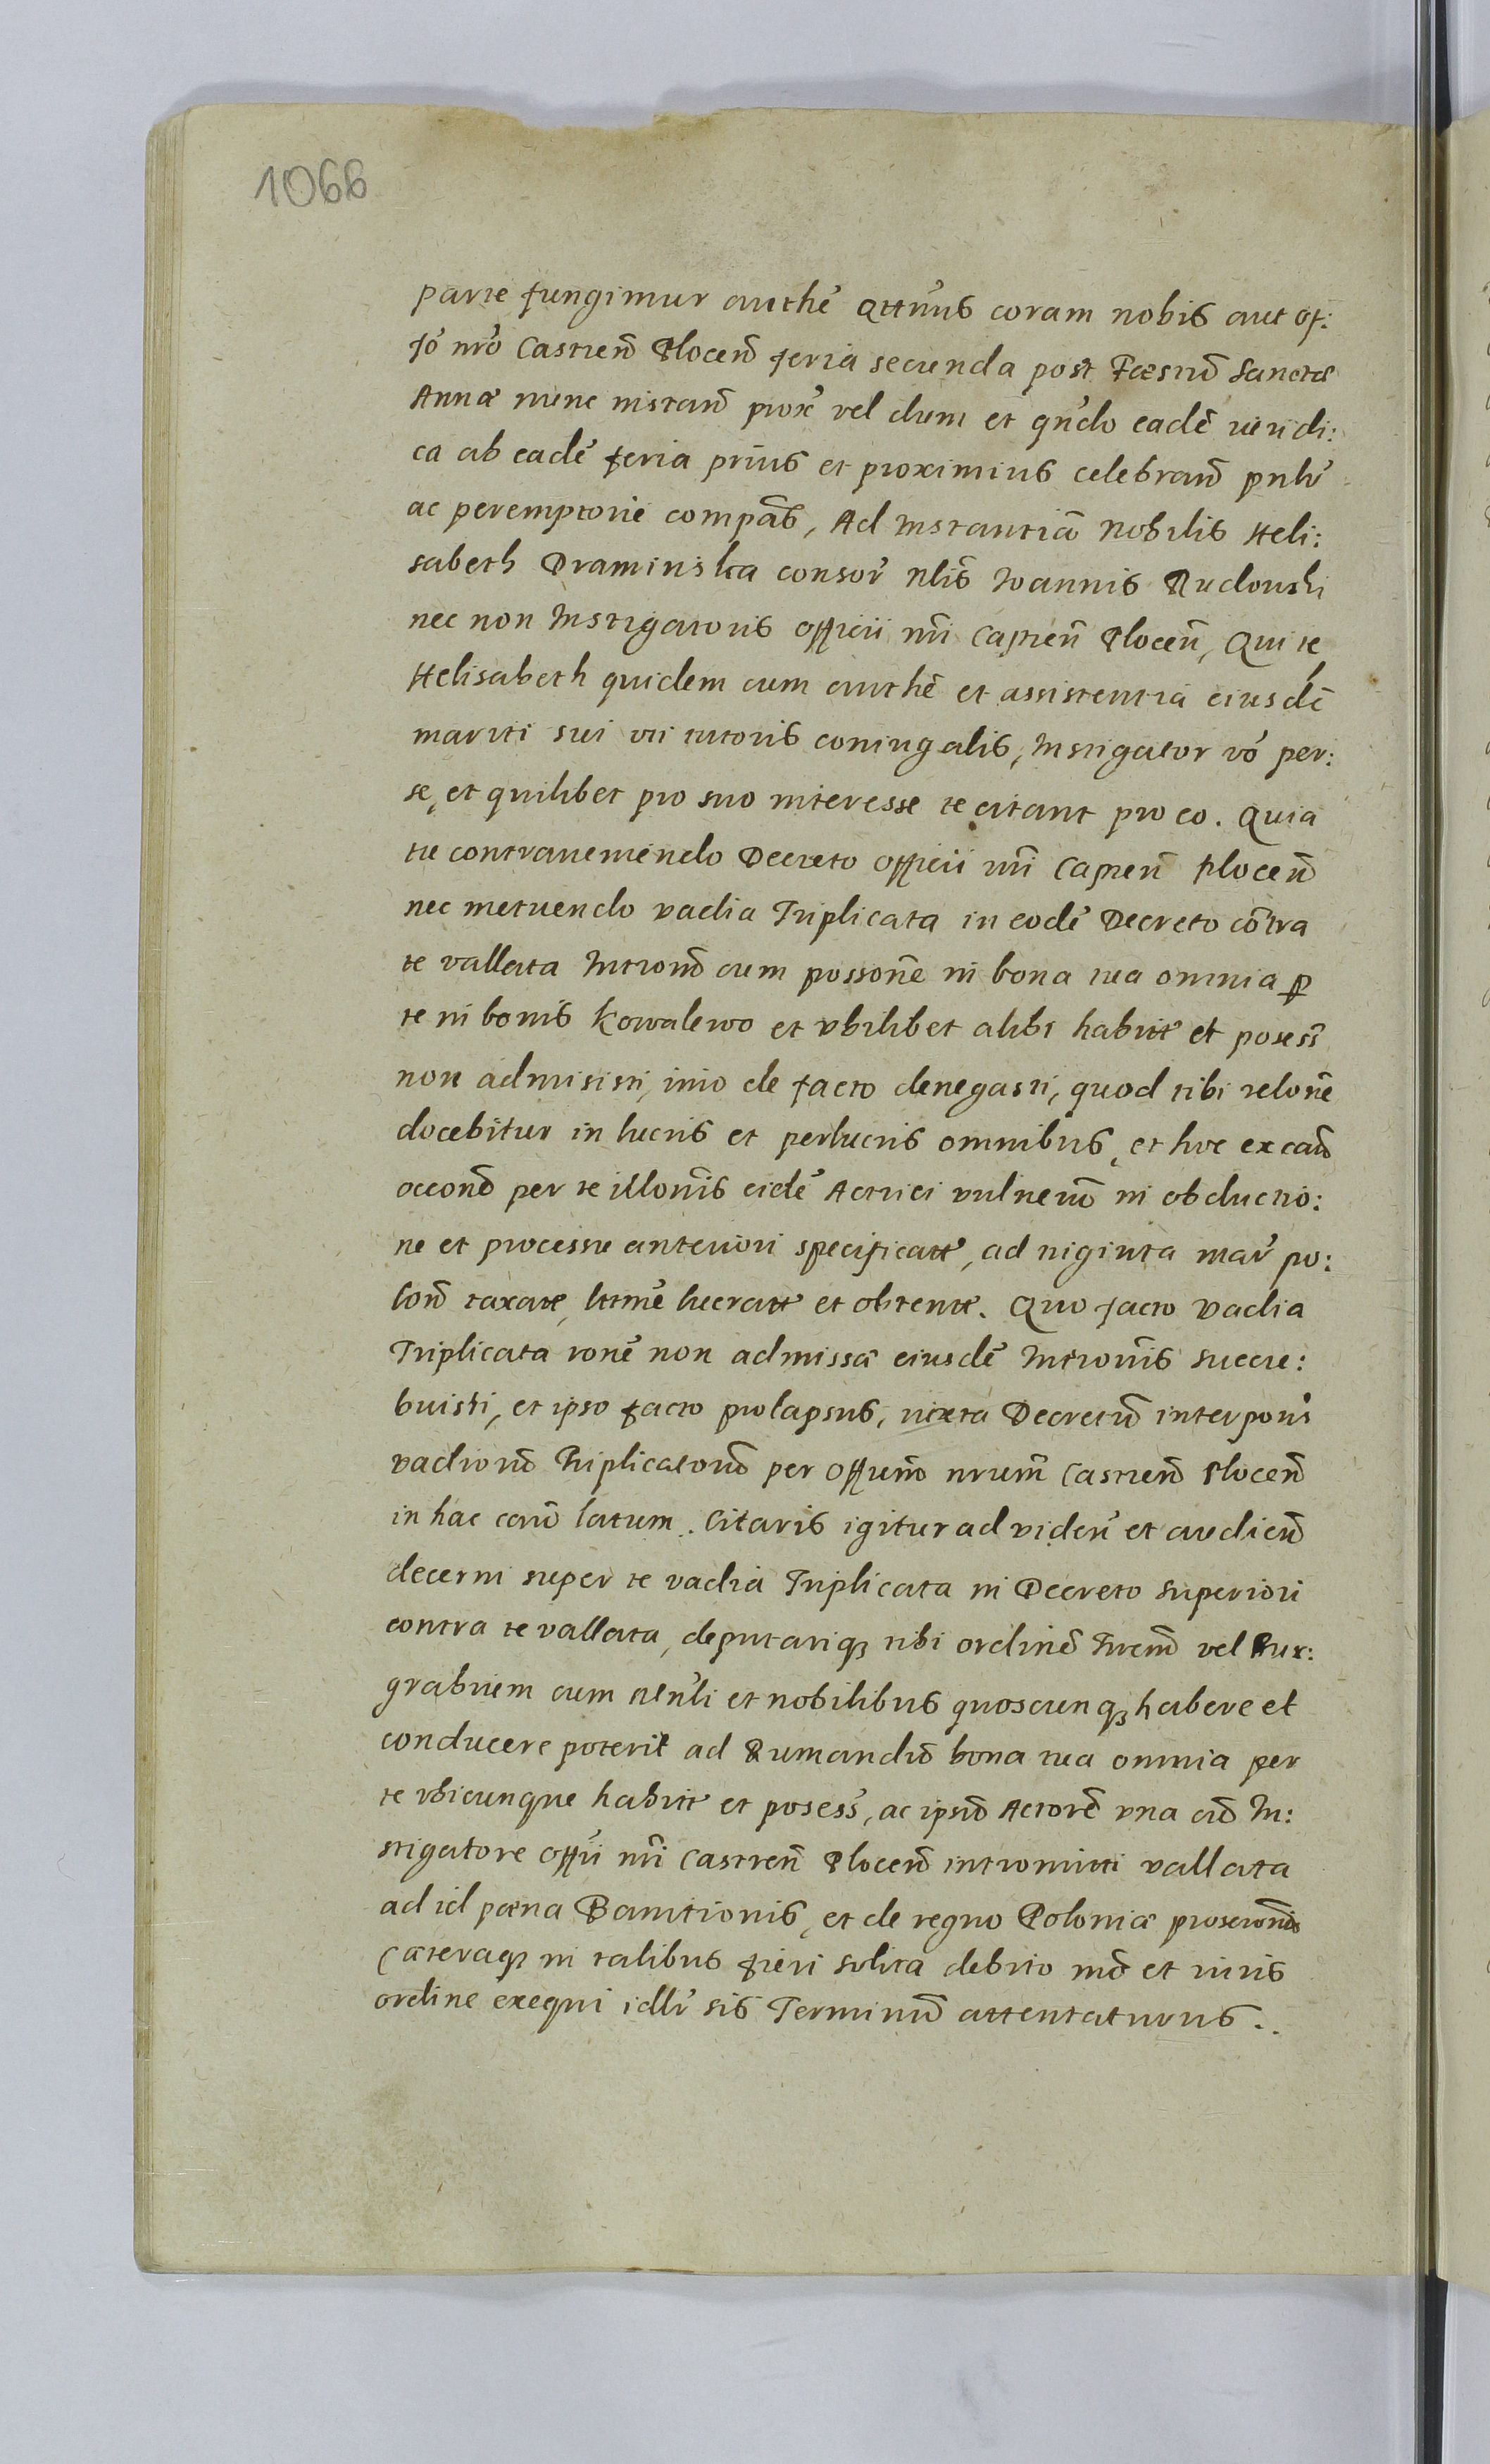 1066
parte fungimur authẽ attñus coram nobis aut of:
fo nro Castreñ Plocen̄ feria secunda post Fæstũ Sanctæ
Annæ nunc instañ prox̃ vel dum et qñdo eadẽ iuridi:
ca ab eadẽ feria prius et proximius celebrañ pñlr
ac peremptorie compãs, Ad Instantiã Nobilis Heli:
sabeth Draminska consor̃ Nlis Ioannis Rudowski
nec non Instigatoris officii nri Capteñ Plocen̄, Qui te
Helisabeth quidem cum authẽ et assistentia eiusdẽ
mariti sui vti tutoris coniugalis, Instigator vo per:
se, et quilibet pro suo interesse te citant pro eo. Quia
tu contraveniendo Decreto officii nri Capteñ Plocen̄
nec metuendo vadia Triplicata in eodẽ Decreto cõtra
te vallata Intromõ cum possonẽ in bona tua omnia p
te in bonis Kowalewo et vbilibet alibi habitt̃ et posess̃
non admisisti, imo de facto denegasti, quod tibi relonẽ
docebitur in lucris et perlucris omnibus, et hoc ex cañ
occonõ per te illonis eidẽ Actrici vulnerũ in obductio:
ne et processu anteriori specificatt̃, ad niginta mar̃ po:
loñ taxatt̃, litmẽ lucratt̃ et obtentt̃. Quo facto vadia
Triplicata ronẽ non admissæ eiusdẽ Intronis succu:
buisti, et ipso facto prolapsus, iuxta Decretũ interpoñi
vadiorũ Triplicatorũ per offiuñ nrum Castreñ Plocen̄
in hac cañ latum. Citaris igitur ad videñ et audieñ
decerni super te vadia Triplicata in Decreto superiori
contra te vallata, deputariq tibi ordinẽ Iurem vel Bur:
grabiem cum Mnrli et nobilibus quoscunq habere et
conducere poterit ad Rumandũ bona tua omnia per
te vbicunque habitt̃ et posess̃, ac ipsũ Actorẽ vna cũ In:
stigatore offii nri Castreñ Plocen̄ intromitti vallata
ad id pæna Banitionis, et de regno Poloniæ proscronis
Cæteraq in talibus fieri solita debito mõ et iuris
ordine exequi idlr sis Terminũ attentaturus..